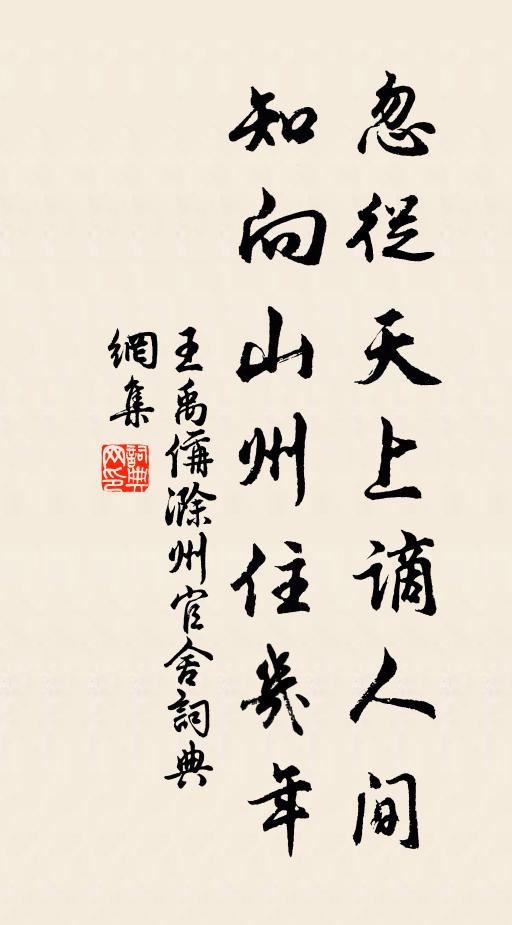 忽從天上謫人间
知向山州住幾年
王禹偁滁州官舍詞典
網集
詞典网印